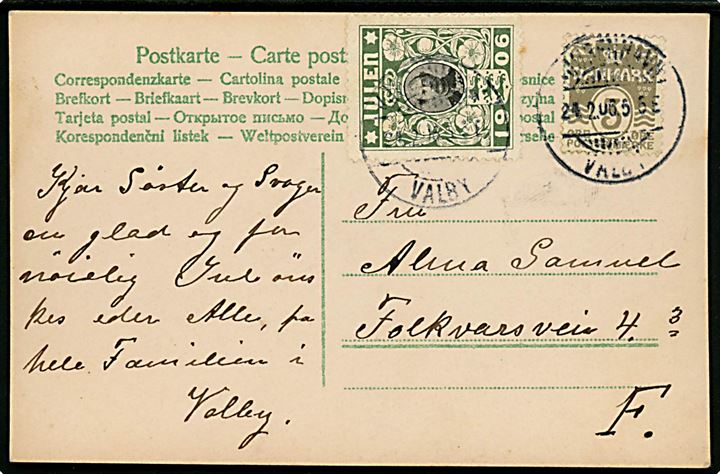 Postkarte – Carte post
Correspondenzkarte – Cartolina postale
Brefkort – Briefkaart – Brevkort – Dopis
Tarjeta postal – Открытое письмо – До
Korespondenční listek – Weltpostverein
JULEN
1906
VALBY
VALBY
3
Kjær Söster og Svoger
en glad og for
nöielig Jul öns
kes eder Alle, fra
hele Familien i
Valby.
Fru
Alma Samuel
Folkvarsvein 4. 3
F.